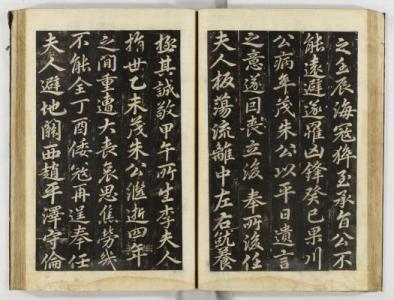 之壬辰海冦猝至承旨公不
能遠避遂罹凶鋒癸巳果川
公病卒茂朱公以平日遺言
之意遂回喪立後奉所後任
夫人板蕩流離中左右就養
極其誠敬甲午所生李夫人
捐世乙未茂朱公繼逝四年
之間重遭大喪哀思焦勞幾
不能全丁酉倭冦再逞奉任
夫人避地關西趙平澤守倫